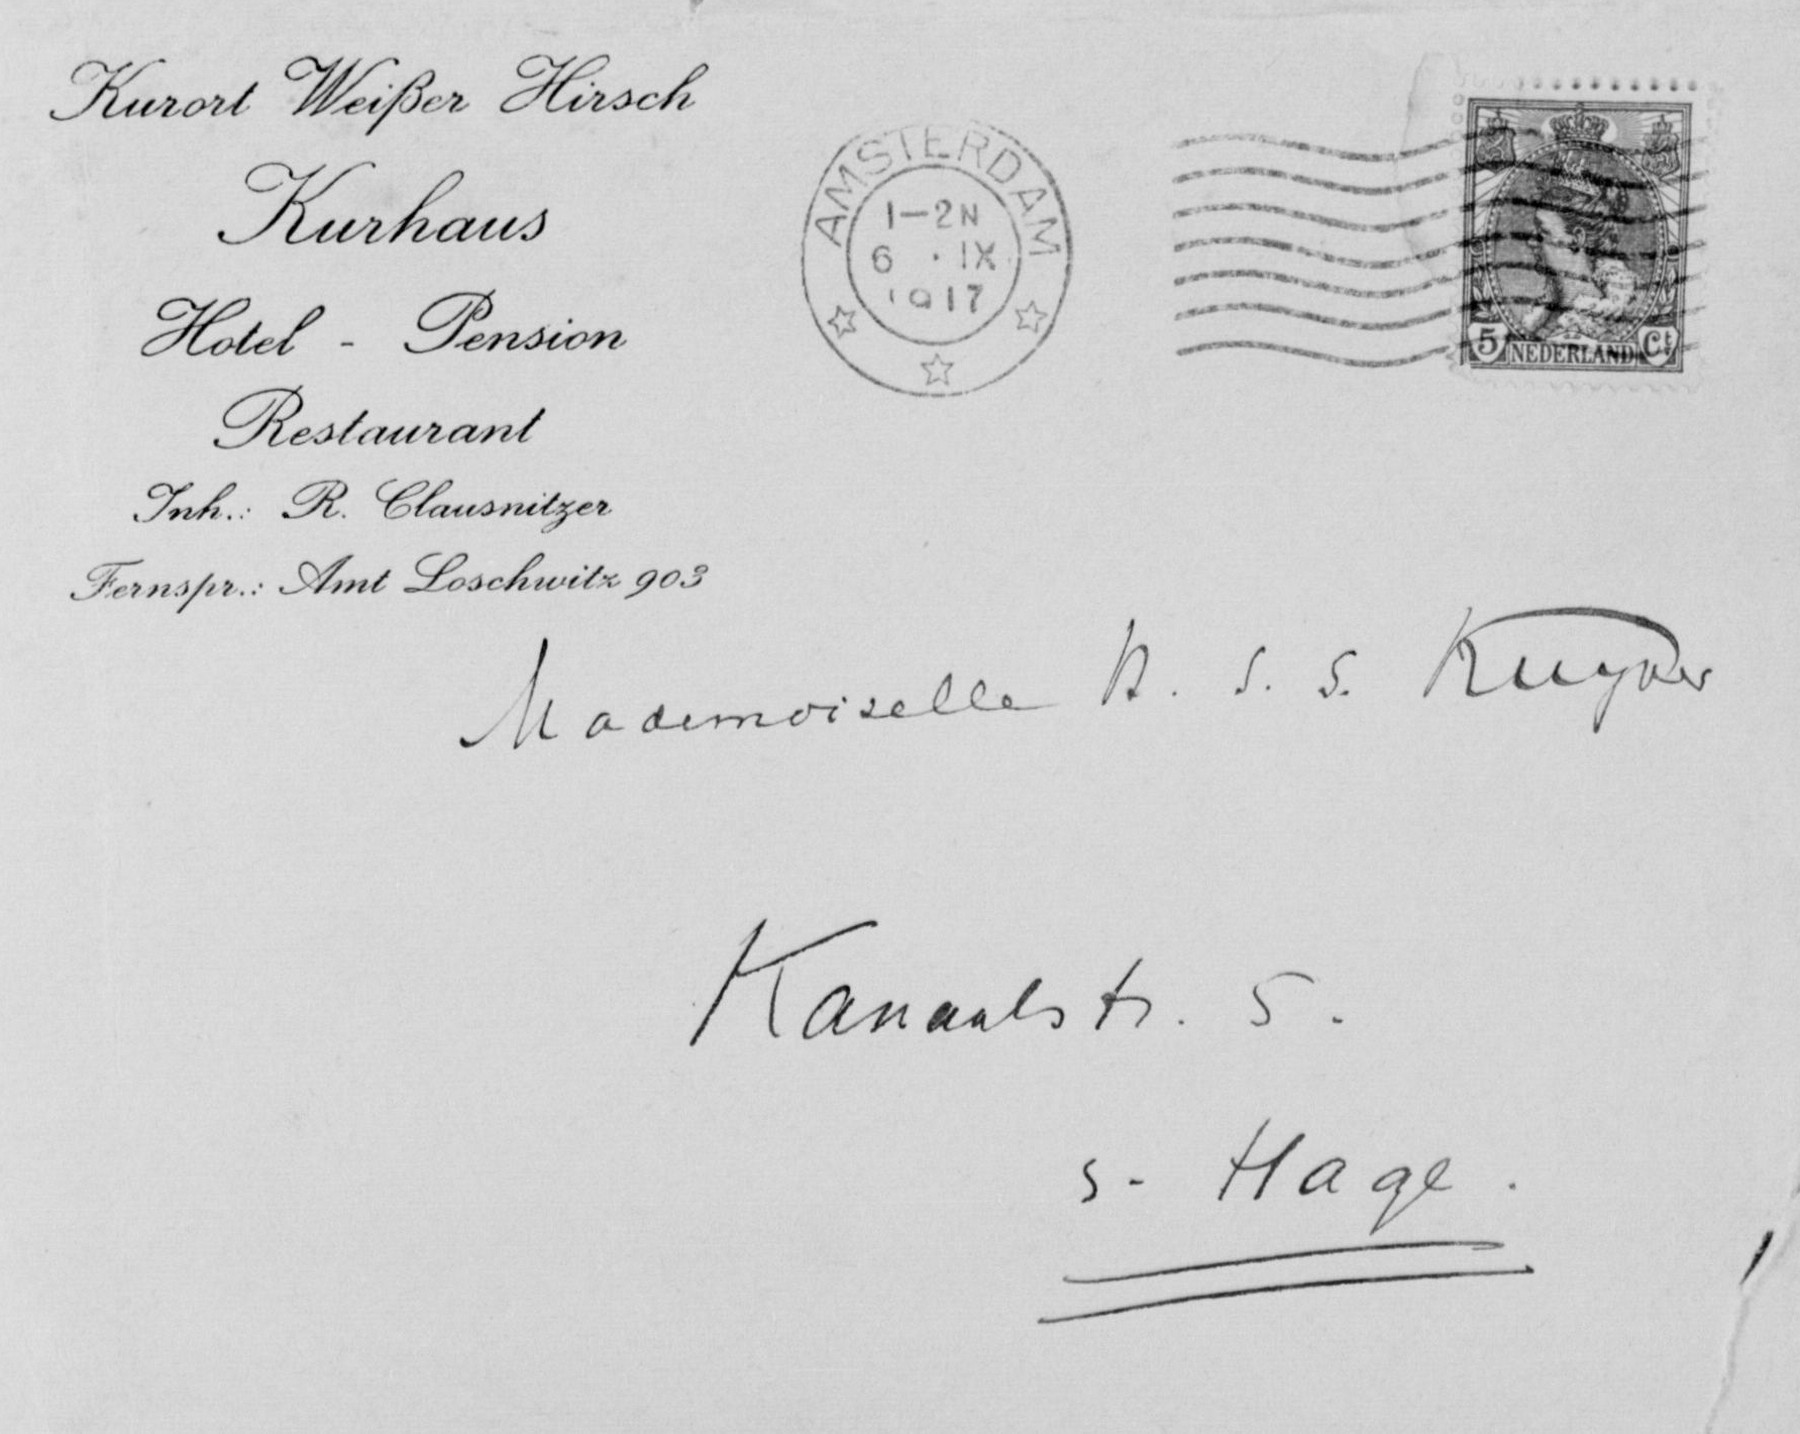 Kurort Weißer Hirsch
Kurhaus
Hotel - Pension
Restaurant
Inh.: R. Clausnitzer
Fernspr.: Amt Loschwitz 903
AMSTERDAM
1–2N
6 · IX
1917
5 NEDERLAND Ct
Mademoiselle H. S. S. Kuyper
Kanaalstr. 5.
s- Hage.